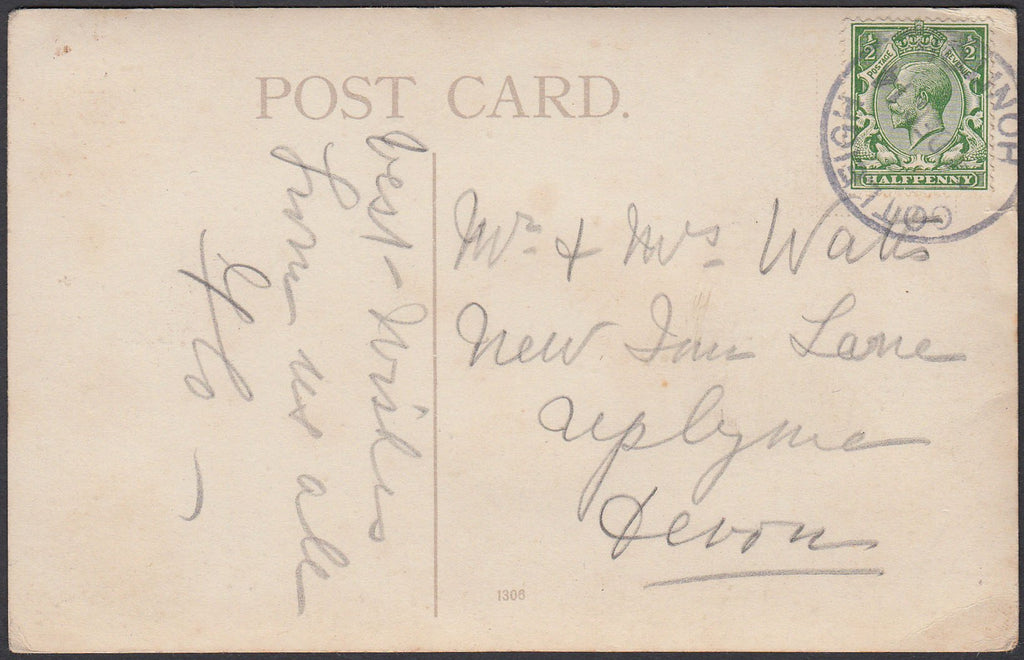 POST CARD.
best wishes
from us all
Mr & Mrs Watts
New Inn Lane
Uplyme
Devon
1306
½ ½
POSTAGE REVENUE
HALFPENNY